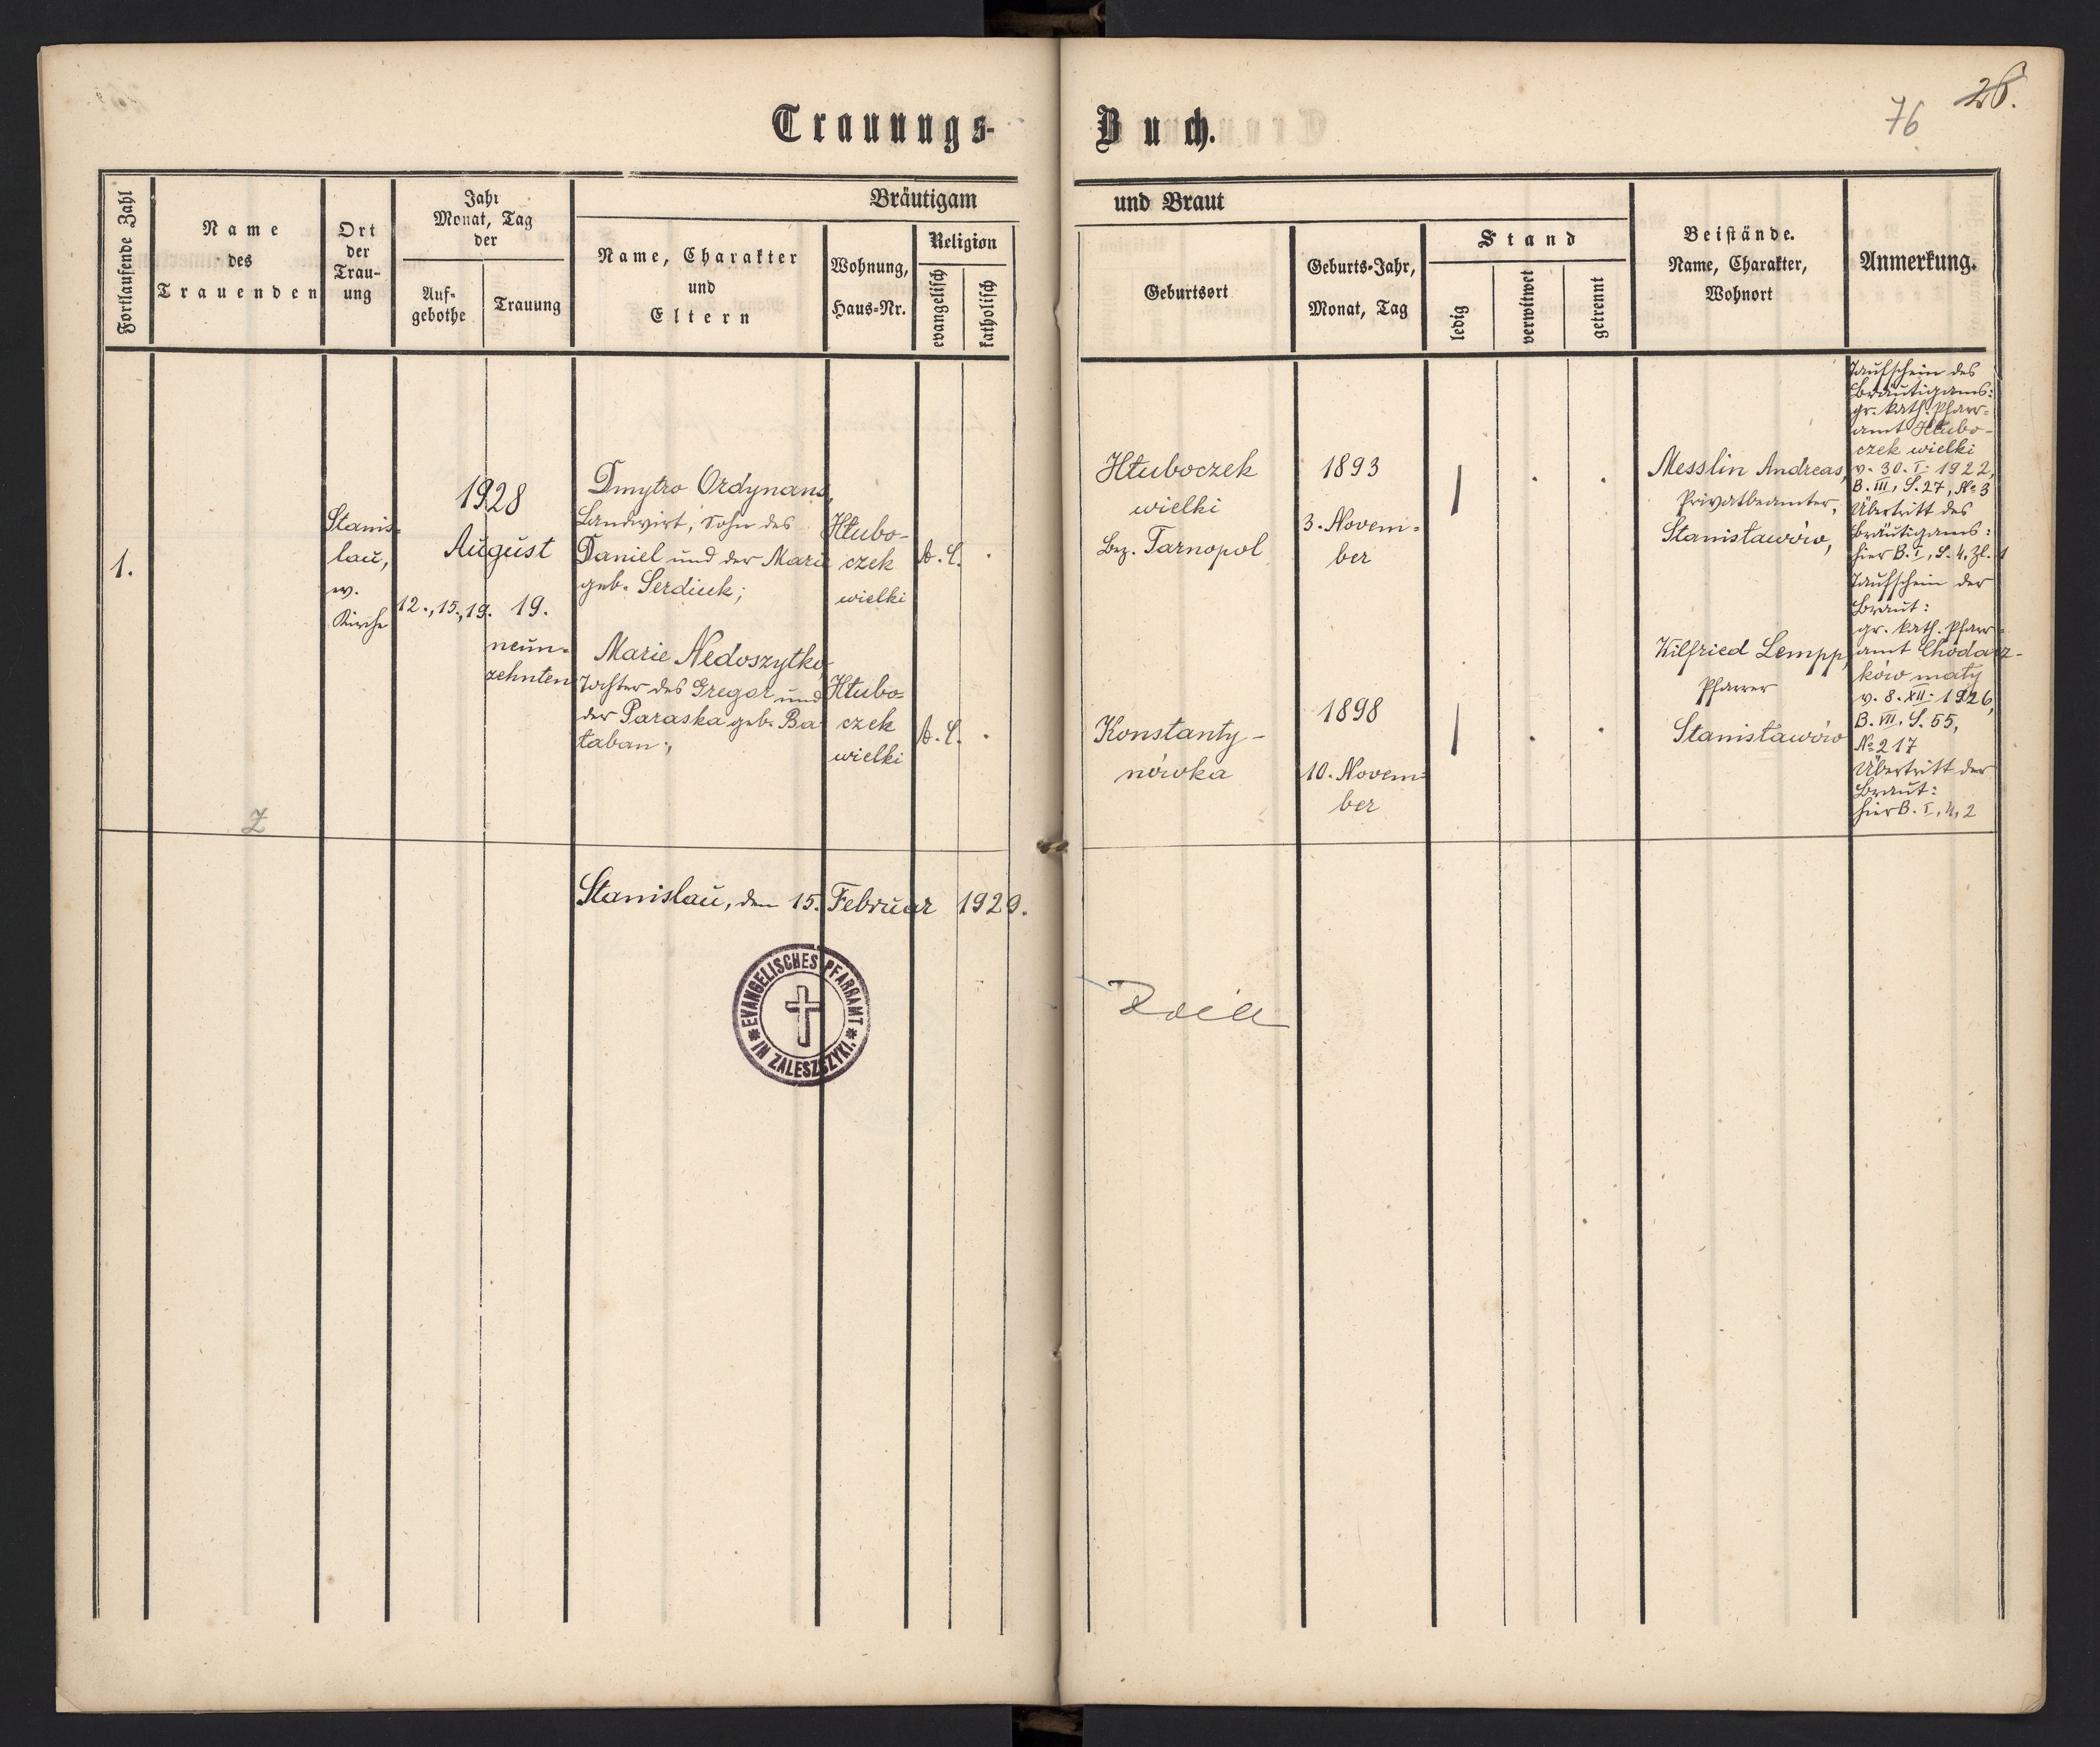 Trauungs-
Buch.
76
26.
Fortlaufende Zahl
Name
des
Trauenden
Ort
der
Trau-
ung
Jahr
Monat, Tag
der
Auf-
gebothe
Trauung
Bräutigam
Name, Charakter
und
Eltern
Wohnung,
Haus-Nr.
Religion
evangelisch
katholisch
und Braut
Geburtsort
Geburts-Jahr,
Monat, Tag
Stand
ledig
verwitwet
getrennt
Beistände.
Name, Charakter,
Wohnort
Anmerkung.
1.
Stanis-
lau,
w.
Kirche
1928
August
12., 15., 19.
19.
neun-
zehnten
Dmytro Ordynans,
Landwirt, Sohn des
Daniel und der Marie
geb. Serdiuk;
Hłubo-
czek
wielki
A. C.
Marie Nedoszytko,
Tochter des Gregor und
der Paraska geb. Ba-
łaban;
Hłubo-
czek
wielki
A. C.
Hłuboczek
wielki
Bez. Tarnopol
1893
3. Novem-
ber
Konstanty-
nówka
1898
10. Novem-
ber
Messlin Andreas,
Privatbeamter,
Stanisławów,
Wilfried Lempp,
Pfarrer
Stanisławów
Taufschein des
Bräutigams:
gr. kath. Pfarr-
amt Hłubo-
czek wielki
v. 30. I. 1922,
B. III, S. 27, № 3
Übertritt des
Bräutigams:
hier B. I, S. 4, Zl. 1
Taufschein der
Braut:
gr. kath. Pfarr-
amt Chodacz-
ków mały
v. 8. XII. 1926,
B. VII, S. 55,
№ 217
Übertritt der
Braut:
hier B. I, 4, 2
Stanislau, den 15. Februar 1929.
EVANGELISCHES PFARRAMT
IN ZALESZCZYKI.